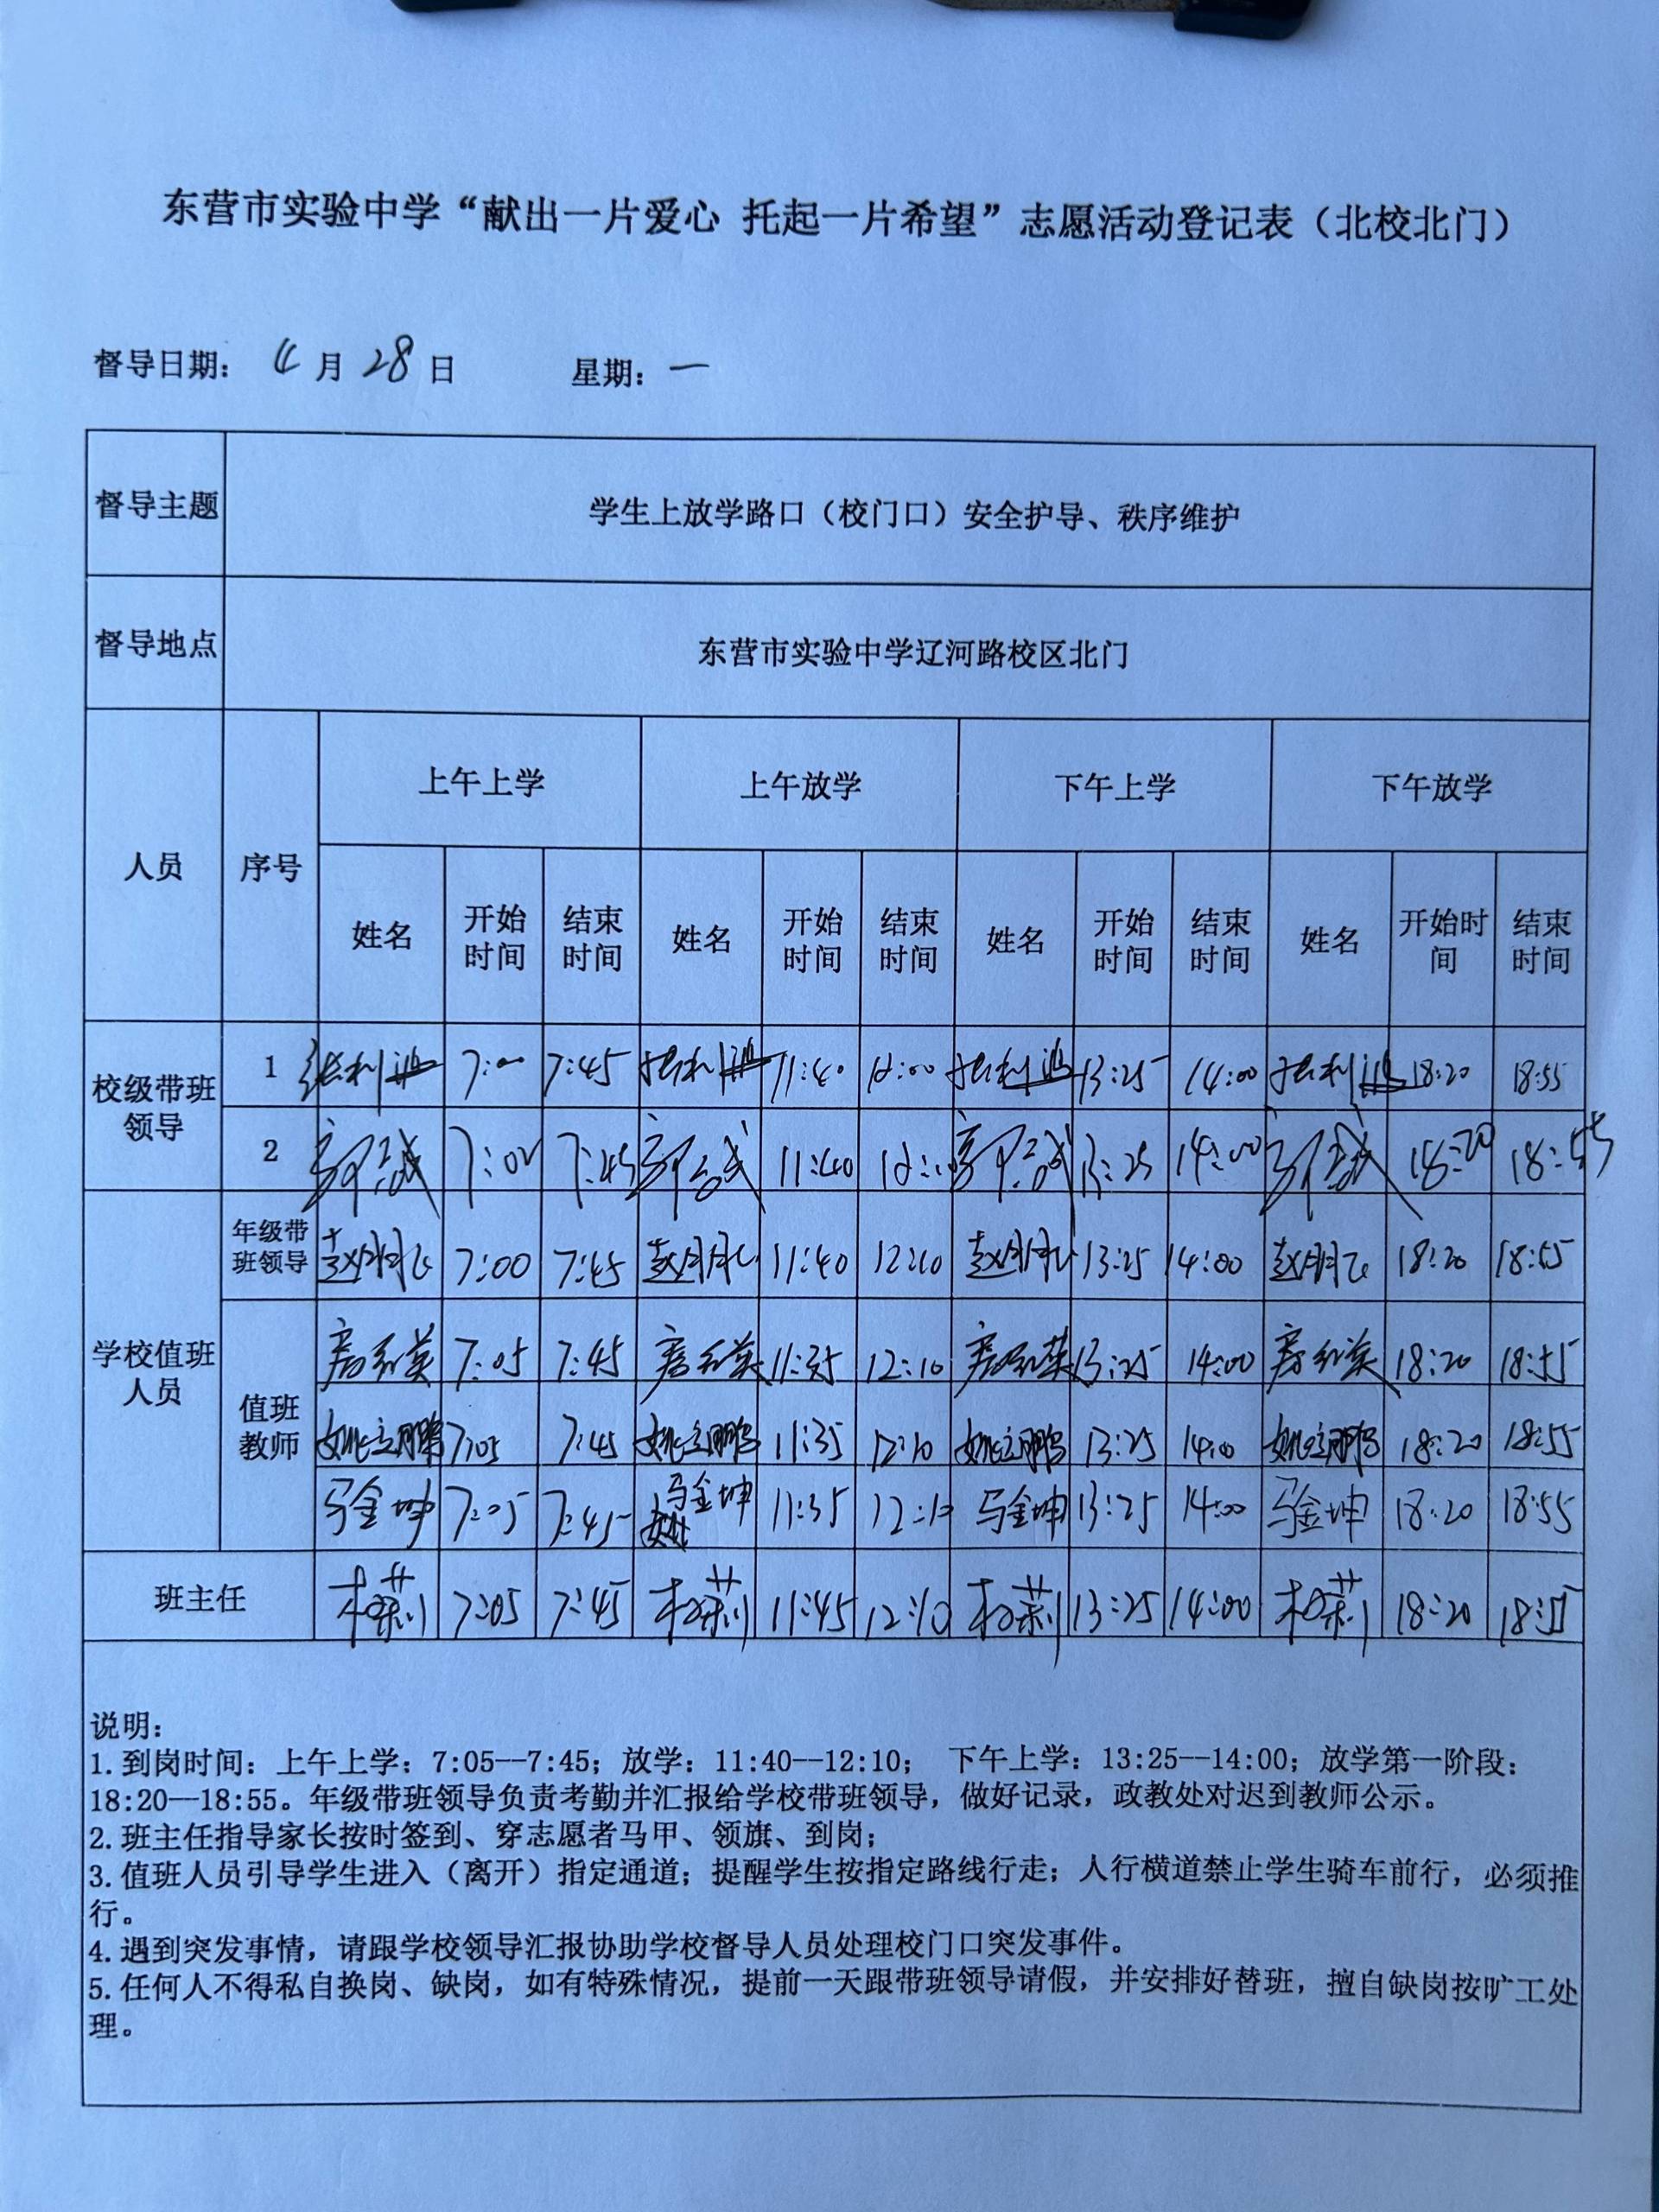 东营市实验中学“献出一片爱心 托起一片希望”志愿活动登记表（北校北门）
督导日期： 4 月 28 日 星期：一
督导主题 学生上放学路口（校门口）安全护导、秩序维护
督导地点 东营市实验中学辽河路校区北门
人员 序号 上午上学 上午放学 下午上学 下午放学
姓名 开始时间 结束时间 姓名 开始时间 结束时间 姓名 开始时间 结束时间 姓名 开始时间 结束时间
校级带班领导
1 7:00 7:45 11:40 13:25 14:00 18:20 18:55
2 7:45 11:40 13:25 14:00 18:20 18:55
学校值班人员
年级带班领导 7:00 7:45 11:40 12:10 13:25 14:00 18:20 18:55
值班教师
7:05 7:45 11:35 12:10 13:25 14:00 18:20 18:55
姚立鹏 7:05 7:45 姚立鹏 11:35 12:10 姚立鹏 13:25 14:00 姚立鹏 18:20 18:55
马金坤 7:05 7:45 马金坤 11:35 12:10 马金坤 13:25 14:00 马金坤 18:20 18:55
班主任 7:05 7:45 11:45 12:10 13:25 14:00 18:20 18:55
说明：
1.到岗时间：上午上学：7:05--7:45；放学：11:40--12:10； 下午上学：13:25--14:00；放学第一阶段：
18:20--18:55。年级带班领导负责考勤并汇报给学校带班领导，做好记录，政教处对迟到教师公示。
2.班主任指导家长按时签到、穿志愿者马甲、领旗、到岗；
3.值班人员引导学生进入（离开）指定通道；提醒学生按指定路线行走；人行横道禁止学生骑车前行，必须推
行。
4.遇到突发事情，请跟学校领导汇报协助学校督导人员处理校门口突发事件。
5.任何人不得私自换岗、缺岗，如有特殊情况，提前一天跟带班领导请假，并安排好替班，擅自缺岗按旷工处
理。